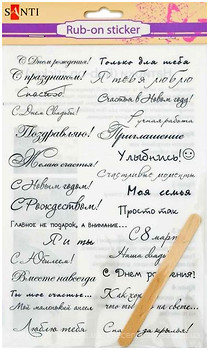 SANTI
Rub-on sticker
С Днем рождения!
Только для тебя
С праздником!
Я тебя люблю
Спасибо!
Счастья в Новом году!
С Днем Свадьбы!
Ручная работа
Поздравляю!
Приглашение
Желаю счастья!
Улыбнись!
Счастливые моменты
С Новым годом!
Моя семья
С Рождеством!
Просто так
Главное не подарок, а внимание...
Я и ты
С 8 марта
С Юбилеем!
Наша свадьба
Вместе навсегда
С Днем рождения!
Ты мое счастье...
Как хорошо,
Мой маленький ангел
что ты есть на свете...
Люблю тебя
Спасибо за крылья!